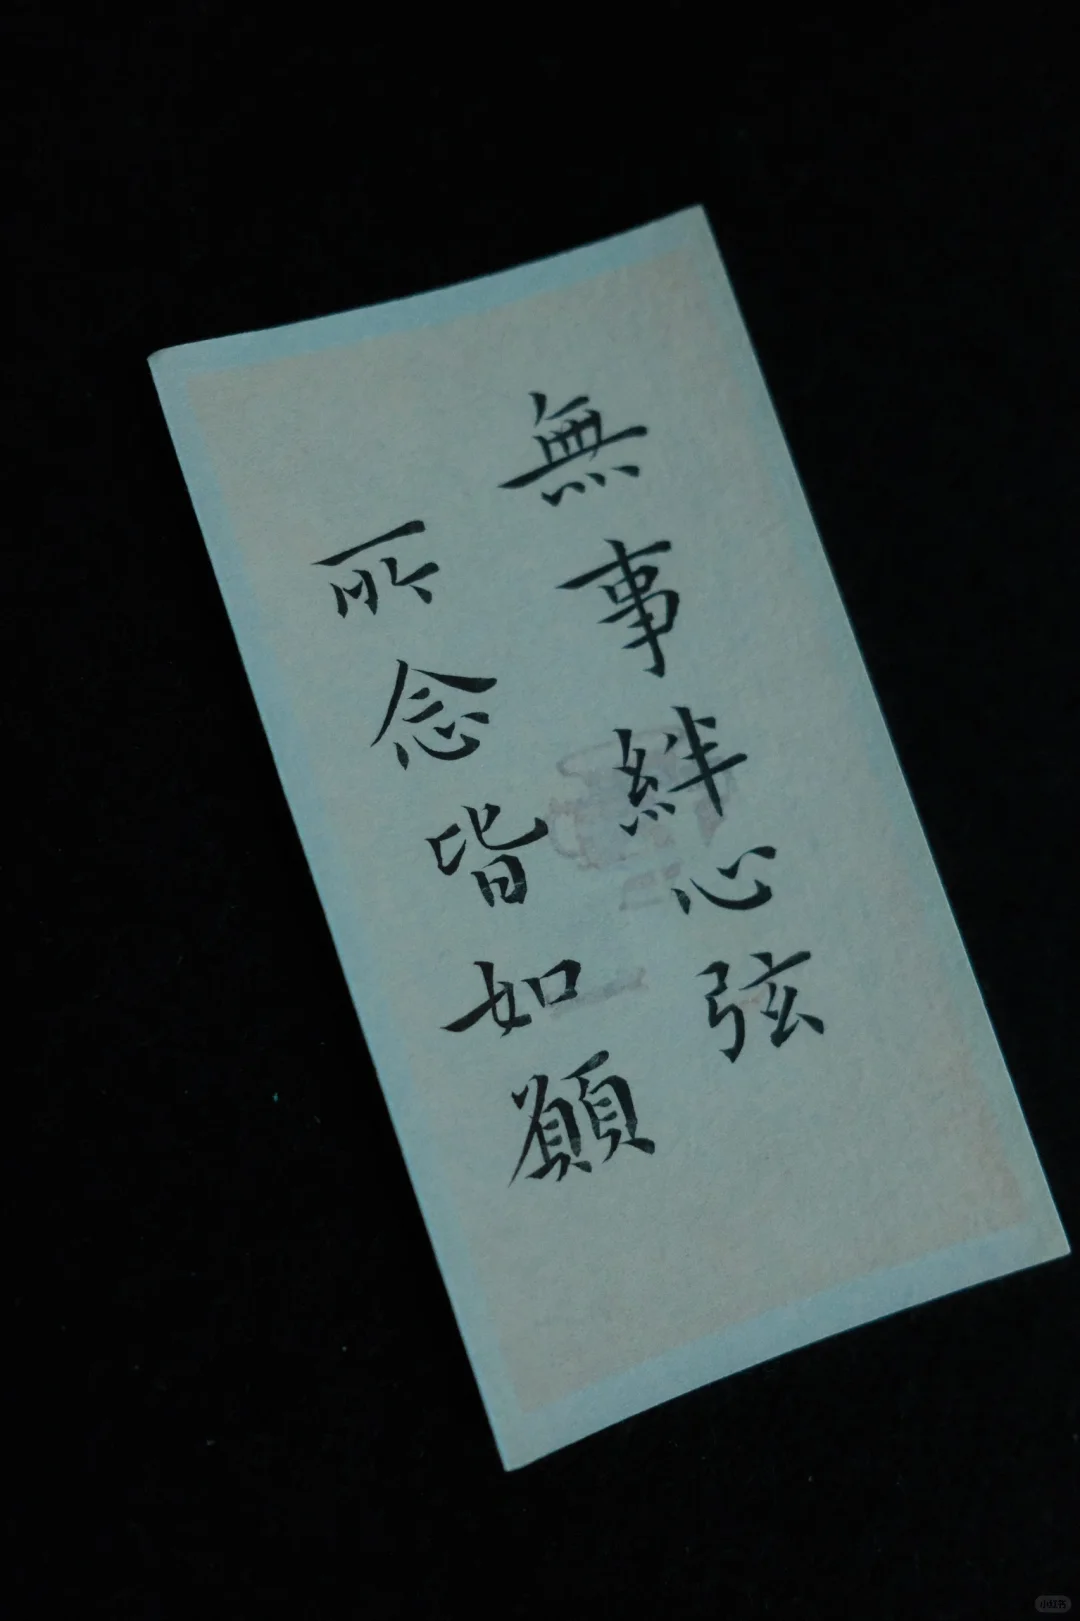 無事絆心弦
所念皆如願
小红书